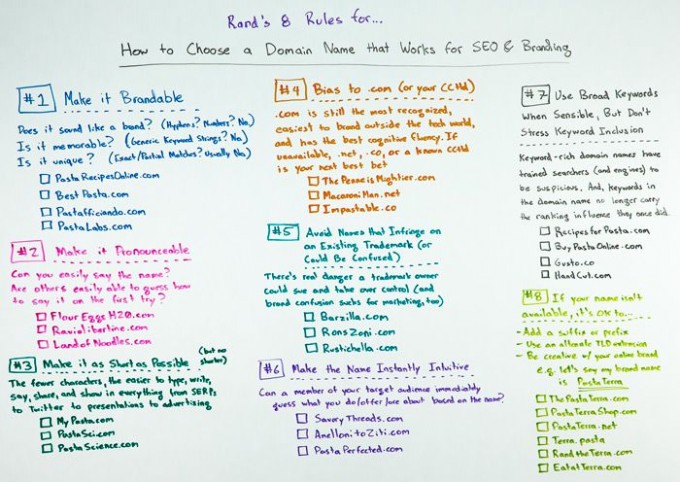 Rand's 8 Rules for...
How to Choose a Domain Name that Works for SEO & Branding
#1 Make it Brandable
Does it sound like a brand? (Hyphens? Numbers? No)
Is it memorable? (Generic Keyword Strings? No)
Is it unique? (Exact/Partial Matches? Usually No)
PastaRecipesOnline.com
BestPasta.com
Pastafficiando.com
PastaLabs.com
#2 Make it Pronounceable
Can you easily say the name?
Are others easily able to guess how
to say it on the first try?
FlourEggsH20.com
Raviolibertine.com
LandofNoodles.com
#3 Make it as Short as Possible (but no
shorter)
The fewer characters, the easier to type, write,
say, share, and show in everything from SERPs
to Twitter to presentations to advertising
MyPasta.com
PastaSci.com
PastaScience.com
#4 Bias to .com (or your CCTld)
.com is still the most recognized,
easiest to brand outside the tech world,
and has the best cognitive fluency. If
unavailable, .net, .co, or a known CCTld
is your next best bet
ThePenneisMightier.com
MacaroniMan.net
Impastable.co
#5 Avoid Names that Infringe on
an Existing Trademark (or
Could Be Confused)
There's real danger a trademark owner
could sue and take over control (and
brand confusion sucks for marketing, too)
Barzilla.com
RonsZoni.com
Rustichella.com
#6 Make the Name Instantly Intuitive
Can a member of your target audience immediately
guess what you do/offer/are about based on the name?
SavoryThreads.com
AnellonitoZiti.com
PastaPerfected.com
#7 Use Broad Keywords
When Sensible, But Don't
Stress Keyword Inclusion
Keyword-rich domain names have
trained searchers (and engines) to
be suspicious. And, keywords in
the domain name no longer carry
the ranking influence they once did.
RecipesforPasta.com
BuyPastaOnline.com
Gusto.co
HandCut.com
#8 If your name isn't
available, it's OK to...
- Add a suffix or prefix
- Use an alternate TLD extension
- Be creative w/ your entire brand
e.g. let's say my brand name
is PastaTerra
ThePastaTerra.com
PastaTerraShop.com
PastaTerra.net
Terra.pasta
RandtheTerra.com
EatatTerra.com